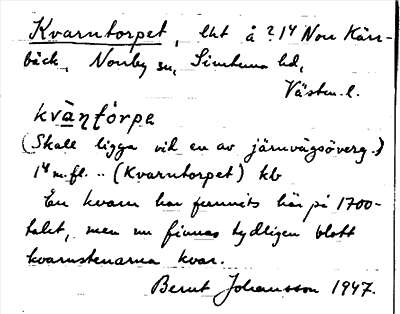 Kvarntorpet, lht å ? 1/4 Norr Kärr-
bäck, Norrby sn, Simtuna hd,
Västm. l.
kvàṇţórpe
(Skall ligga vid en av järnvägsöverg.)
1/4 m. fl. .. (Kvarntorpet) kb
En kvarn har funnits här på 1700-
talet, men nu finnes tydligen blott
kvarnstenarna kvar.
Bernt Johansson 1947.